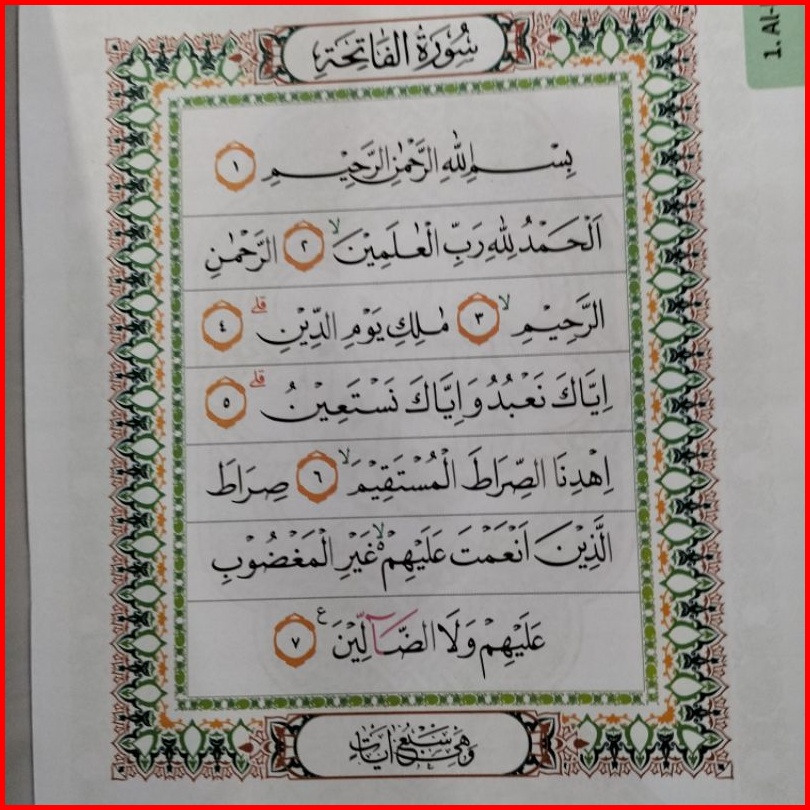 سُورَةُ الْفَاتِحَةِ
1. Al-
بِسْمِ اللّٰهِ الرَّحْمٰنِ الرَّحِيْمِ ١
اَلْحَمْدُ لِلّٰهِ رَبِّ الْعٰلَمِيْنَ ۙ ٢ الرَّحْمٰنِ
الرَّحِيْمِ ۙ ٣ مٰلِكِ يَوْمِ الدِّيْنِ ۗ ٤
اِيَّاكَ نَعْبُدُ وَاِيَّاكَ نَسْتَعِيْنُ ۗ ٥
اِهْدِنَا الصِّرَاطَ الْمُسْتَقِيْمَ ۙ ٦ صِرَاطَ
الَّذِيْنَ اَنْعَمْتَ عَلَيْهِمْ ەۙ غَيْرِ الْمَغْضُوْبِ
عَلَيْهِمْ وَلَا الضَّاۤلِّيْنَ ࣖ ٧
وَهِيَ سَبْعُ اٰيَاتٍ